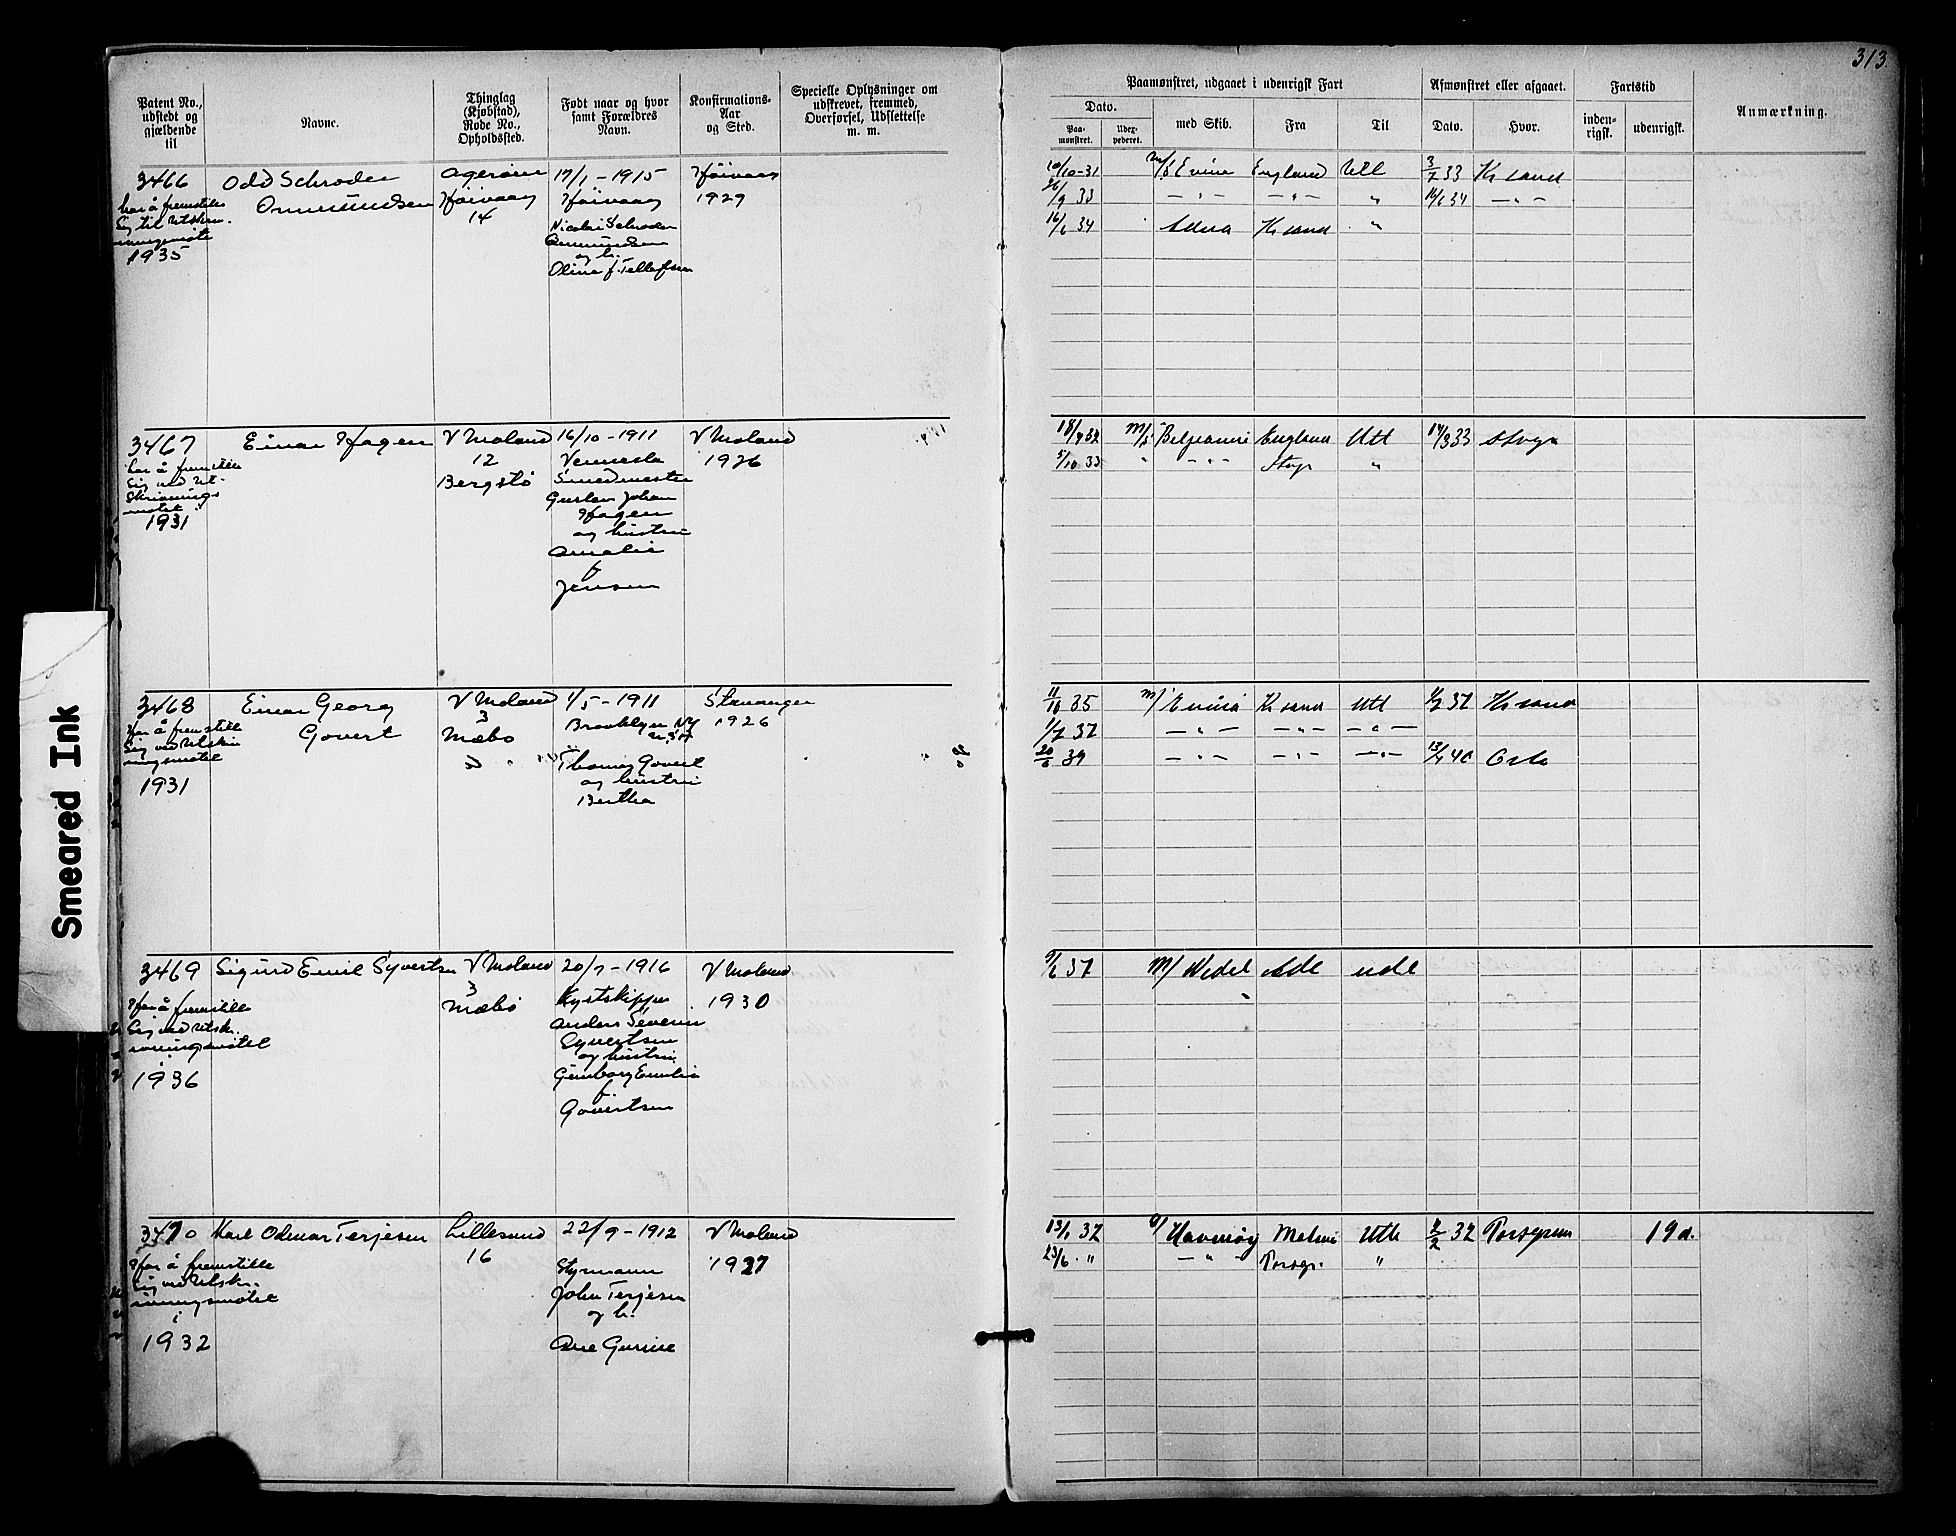 313.
Patent No., udstedt og gjældende til
Navne.
Thinglag (Kjøbstad), Rode No., Opholdssted.
Født naar og hvor samt Forældres Navn.
Konfirmations-Aar og Sted.
Specielle Oplysninger om udskrevet, fremmed, Overførsel, Udslettelse m. m.
Paamønstret, udgaaet i udenrigsk Fart
Dato.
Paa-mønstret.
Udex-pederet.
med Skib.
Fra
Til
Afmønstret eller afgaaet.
Dato.
Hvor.
Fartstid
inden-rigsk.
udenrigsk.
Anmærkning.
3466
har å fremstille
sig til Utskriv-
ningsmøte
1935
Odd Schrøder
Ommundsen
Agerøen
Høivaag
14
17/1 - 1915
Høivaag
Nicolai Schrøder
Ommundsen
og h.
Oline f. Tellefsen
Høivaag
1929
10/10-31 England Utl 3/7 33 Kr sand
26/9 33 — " — — " — " 16/6 34 — " —
16/6 34 Kr sand "
3467
har å fremstille
sig ved Ut-
skrivnings
møtet i
1931
Einar Hagen
V Moland
12
Bergstø
16/10 - 1911
Vennesla
Smedmester
Gustav Johan
Hagen
og hustru
Amalie
f
Jensen
V Moland
1926
18/7 32 M/S Beljeanne England Utl 14/3 33
5/10 33 " — " — "
3468
Har å fremstille
sig ved Utskriv
ningsmøtet
1931
Einar Georg
Govert
V Moland
3
Mæbø
1/5 - 1911
Brooklyn NY
U.S.A
Thomas Govert
og hustru
Bertha
Stavanger
1926
11/10 35 Kr sand Utl 37 Kr sand
1/7 37 — " — — " — — " —
39 — " — — " — — " — 13/4 40 Oslo
3469
Har å fremstille
sig ved Utsk.
rivningsmøtet
i
1936
Sigurd Emil Syvertsen
V Moland
3
Mæbø
20/7 - 1916
Kystskipper
Anders Severin
Syvertsen
og hustru
Gunborg Emilie
f
Govertsen
V Moland
1930
9/6 37 M/ Wedel
3470
Har å fremstille
sig ved Utsk.
rivningsmøtet
i
1932
Karl Odmar Terjesen
Lillesand
16
22/9 - 1912
Styrmann
John Terjesen
og h.
Ane Gurine
V Moland
1927
13/1 32 Malmø Utl 2/2 32 Porsgrunn 19 d.
23/6 " — " — Porsgr. "
Smeared Ink